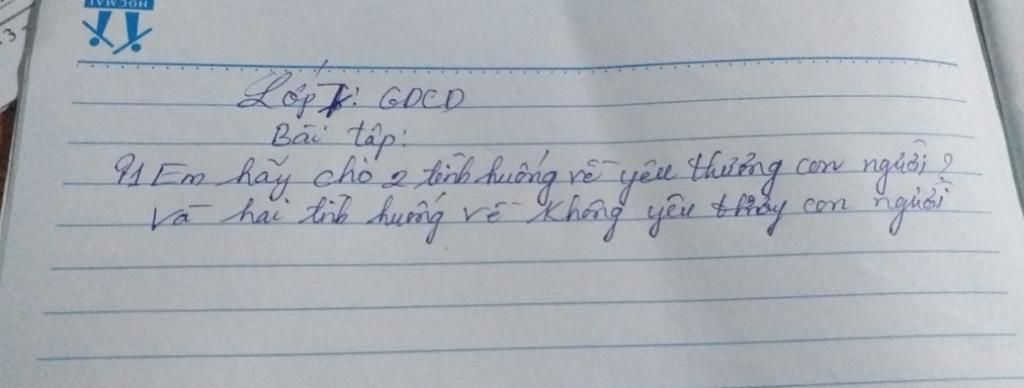 HOCMAI
3
Lớp 7: GDCD
Bài tập:
91 Em hãy cho 2 tình huống về yêu thương con người?
Và hai tình huống về không yêu thương con người